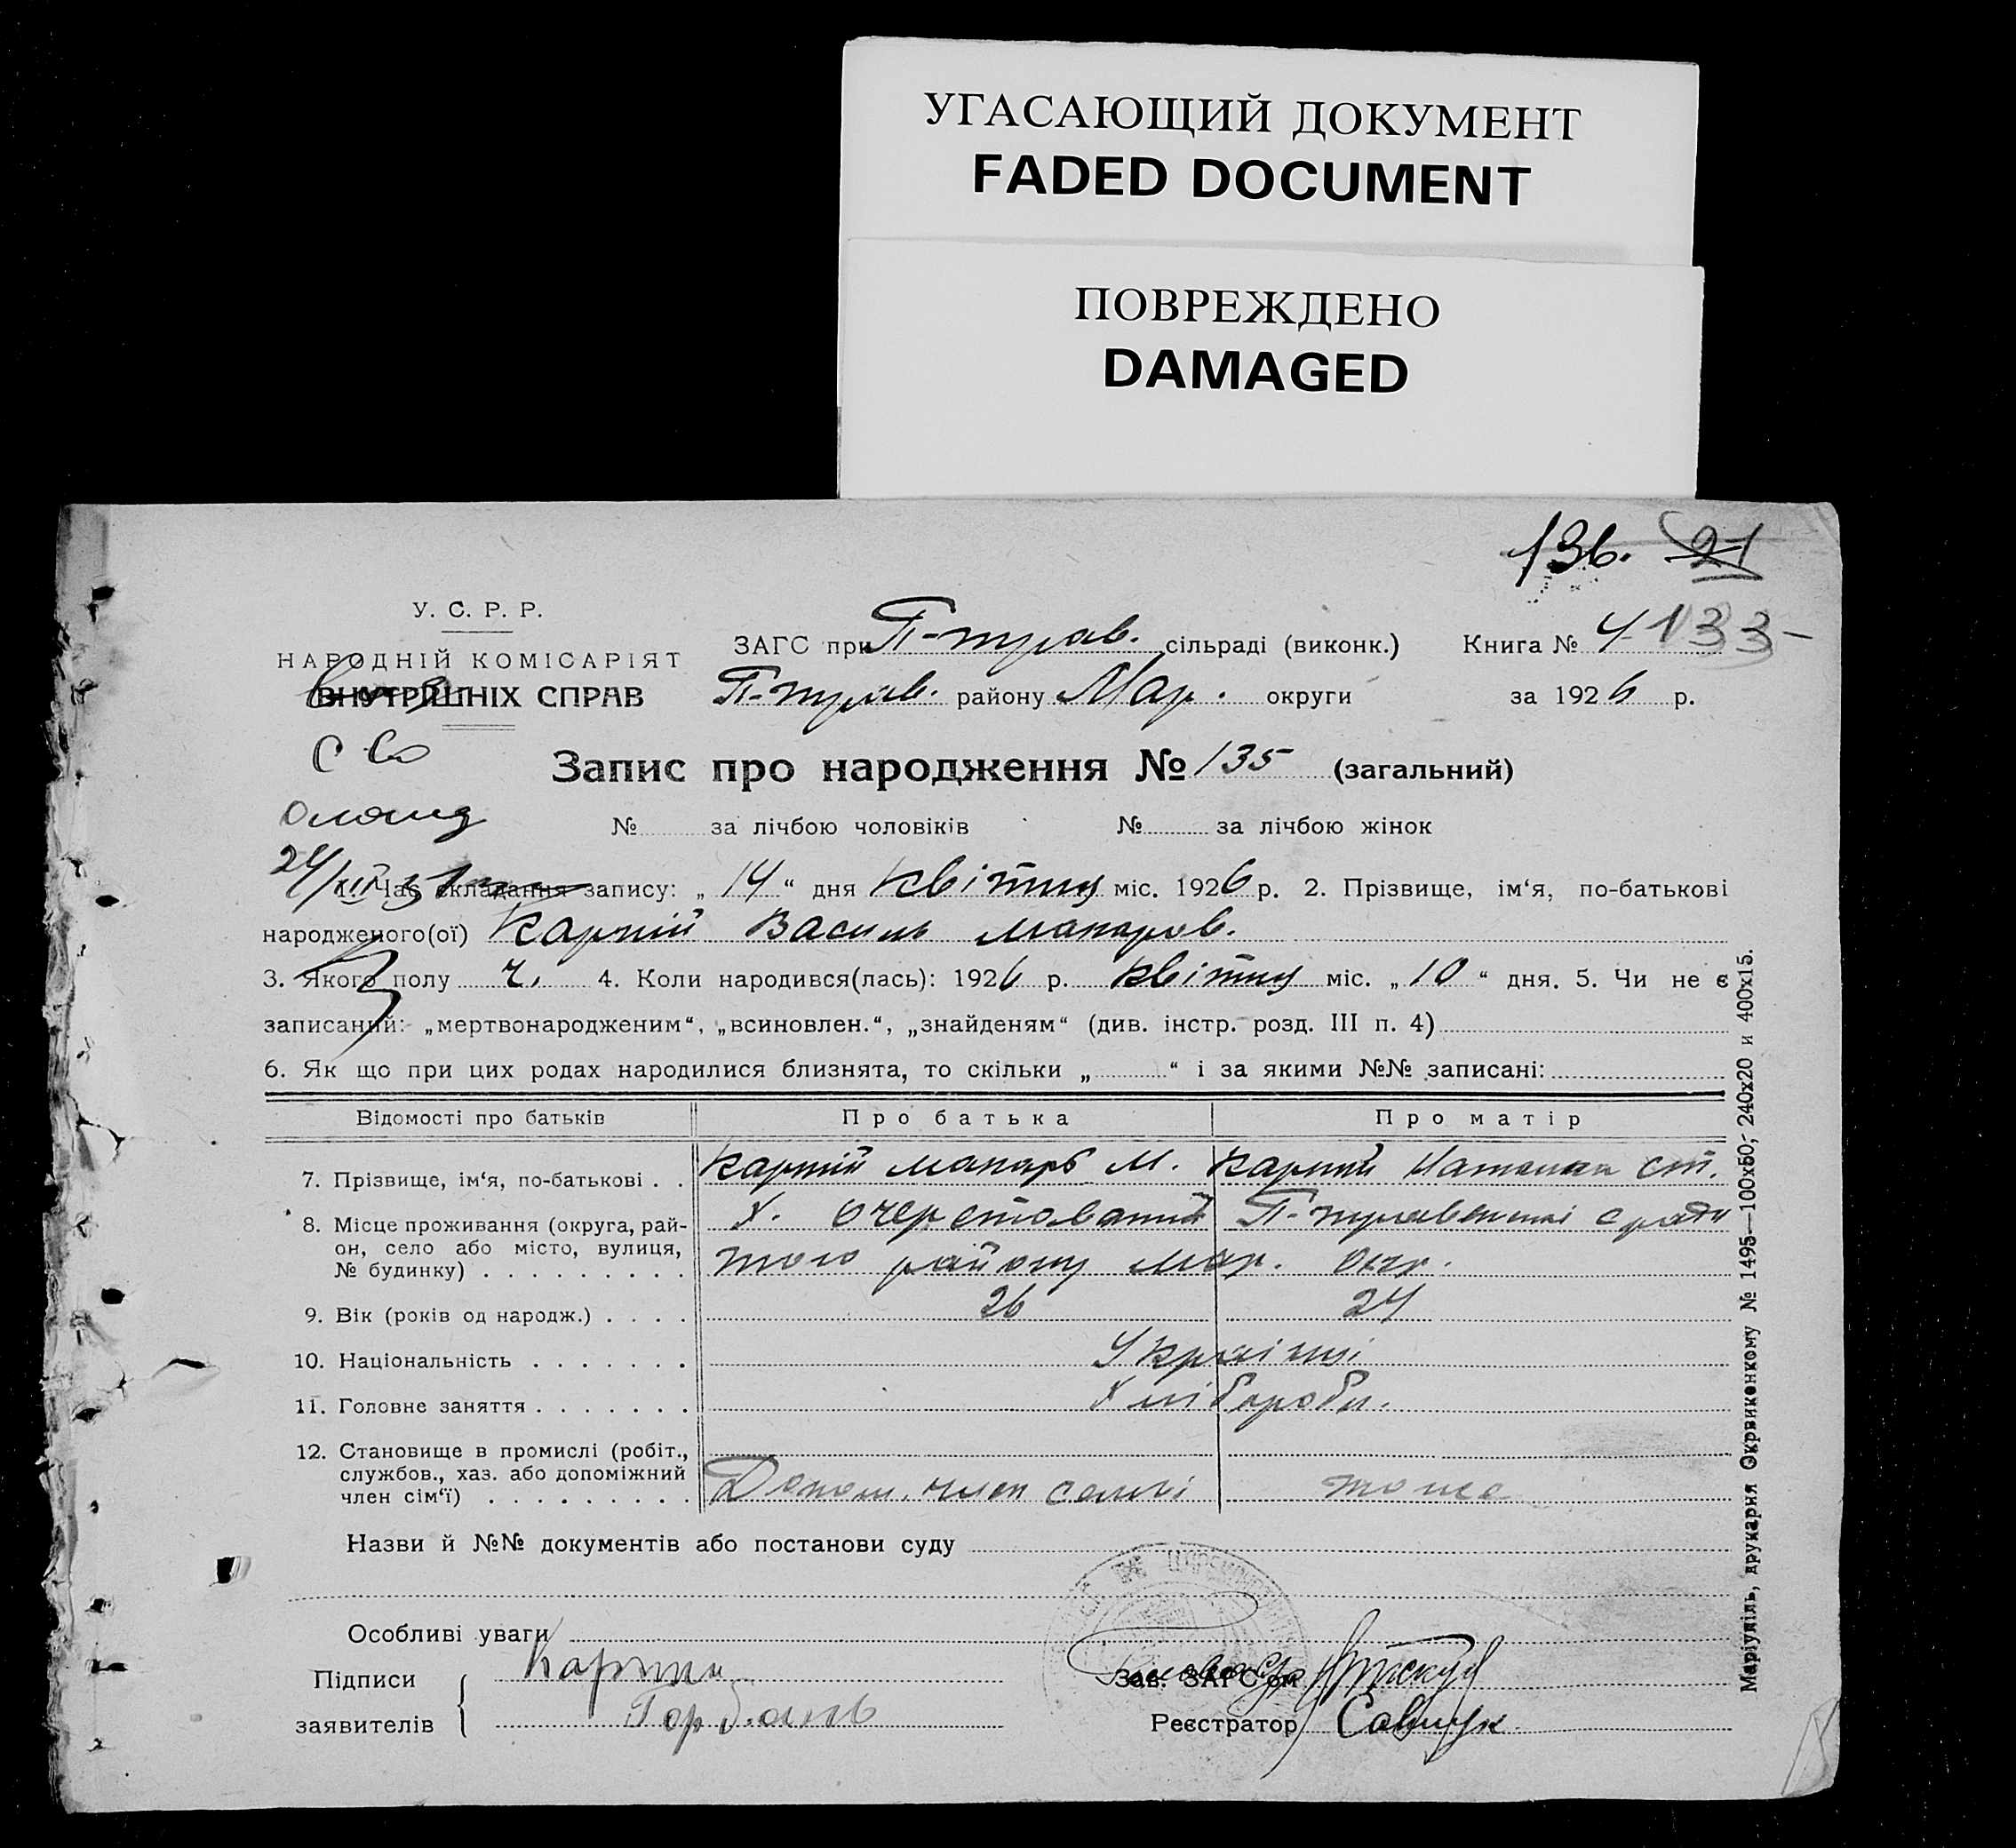 УГАСАЮЩИЙ ДОКУМЕНТ
FADED DOCUMENT
ПОВРЕЖДЕНО
DAMAGED
136. 21
У. С. Р. Р.
НАРОДНІЙ КОМІСАРІЯТ
ВНУТРІШНІХ СПРАВ
ЗАГС при сільраді (виконк.) Книга № 4 133-
району Мар. округи за 1926 р.
Запис про народження № 135 (загальний)
№ за лічбою чоловіків № за лічбою жінок
1. Час складання запису: „ 14 “ дня квітня міс. 1926 р. 2. Прізвище, ім‘я, по-батькові
народженого(ої) Карпій Василь Макаров.
3. Якого полу ч. 4. Коли народився(лась): 1926 р. квітня міс. „ 10 “ дня. 5. Чи не є
записаний: „мертвонародженим“, „всиновлен.“, „знайденям“ (див. інстр. розд. III п. 4)
6. Як що при цих родах народилися близнята, то скільки „ “ і за якими №№ записані:
Відомості про батьків Про батька Про матір
7. Прізвище, ім‘я, по-батькові . . Карпій Макарь М. Карпій ст.
8. Місце проживання (округа, рай-
он, село або місто, вулиця,
№ будинку) . . . . . . . . . того району мар. окр.
9. Вік (років од народж.) . . . . 26 24
10. Національність . . . . . . . Україньці
11. Головне заняття . . . . . . . Хлібороби.
12. Становище в промислі (робіт.,
службов., хаз. або допоміжний
член сім‘ї) . . . . . . . . . Допом. член тоже
Назви й №№ документів або постанови суду
Особливі уваги
Підписи
заявителів
Зав. ЗАГС‘ом
Реєстратор Савчук
Маріупіль, друкарня Окрвиконкому № 1495—100х50; 240х20 и 400х15.